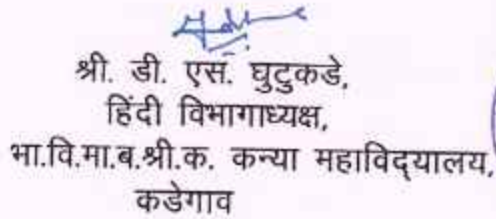 श्री. डी. एस. घुटुकडे,
हिंदी विभागाध्यक्ष,
भा.वि.मा.ब.श्री.क. कन्या महाविद्यालय,
कडेगाव